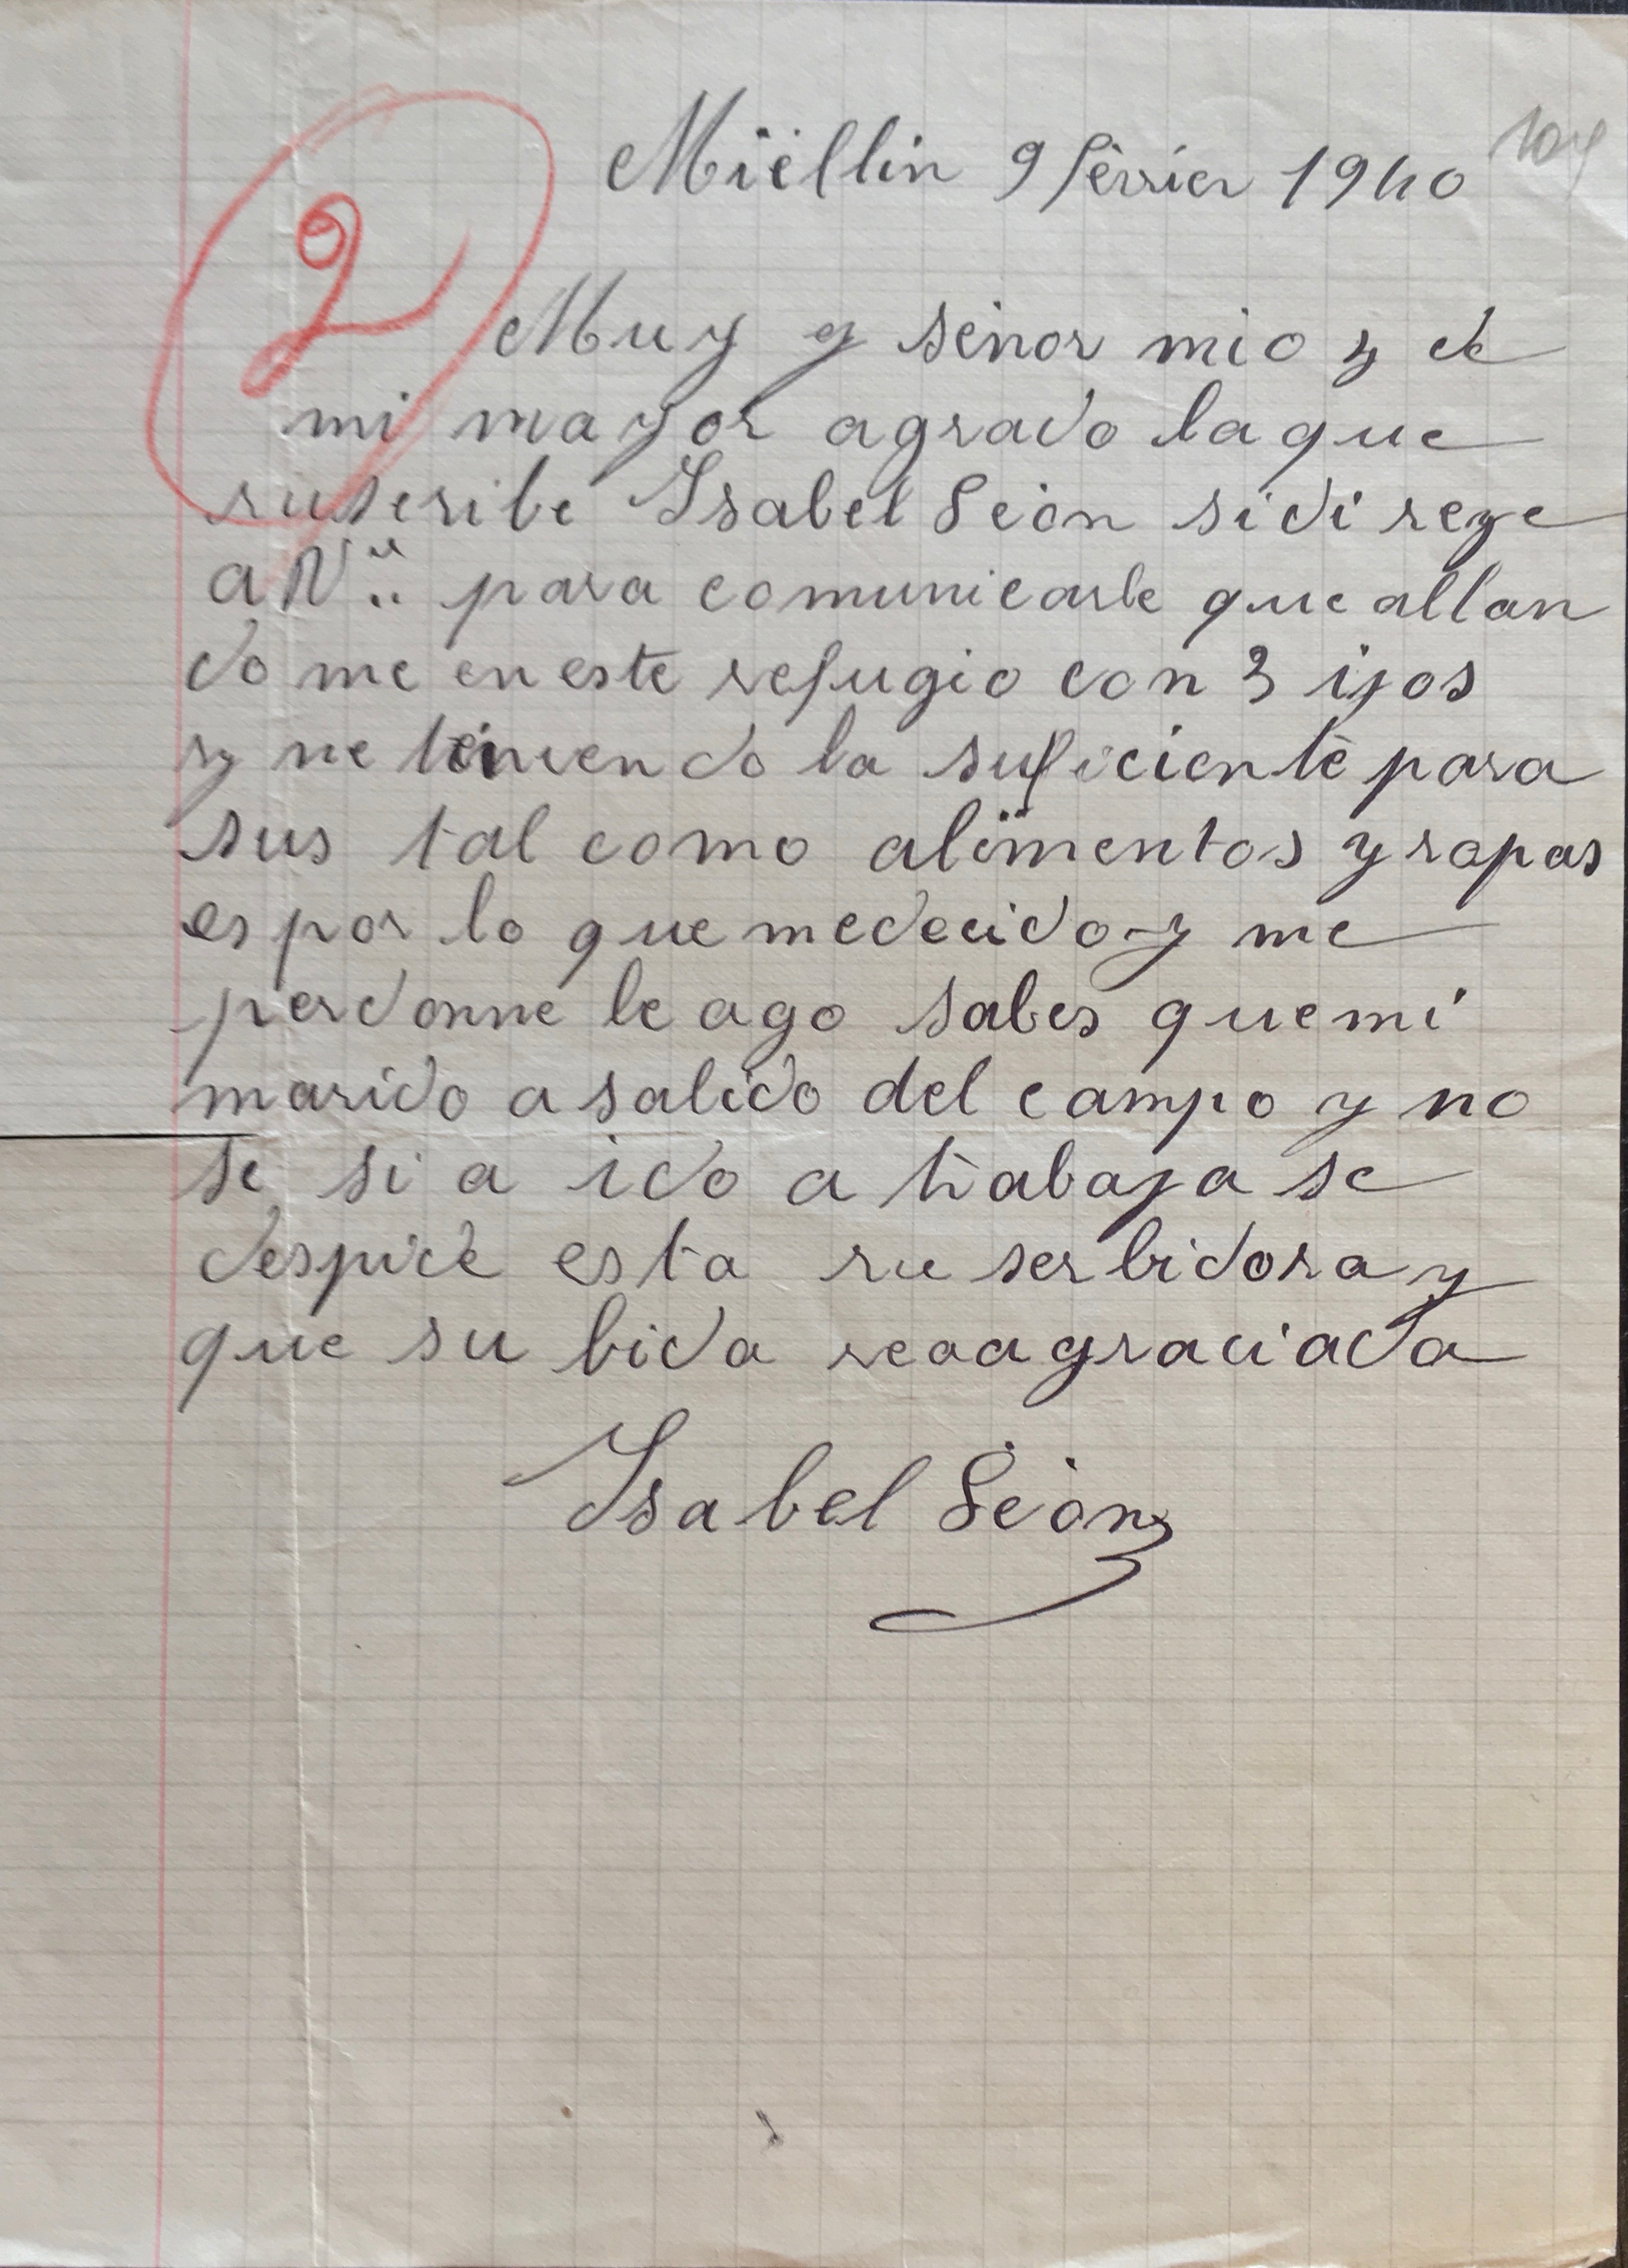 Miëllin 9 fèvrier 1940
2
Muy y señor mio y de
mi mayor agrado la que
suscribe Isabel León sidi rege
a V.. para comunicarle que allan
do me en este refugio con 3 ijos
y ne teniendo la suficiente para
sus tal como alimentos y ropas
es por lo que medecido y me
perdonne le ago saber que mi
marido a salido del campo y no
se si a ido a trabaja se
despide esta su serbidora y
que su bida sea agraciada
Isabel León